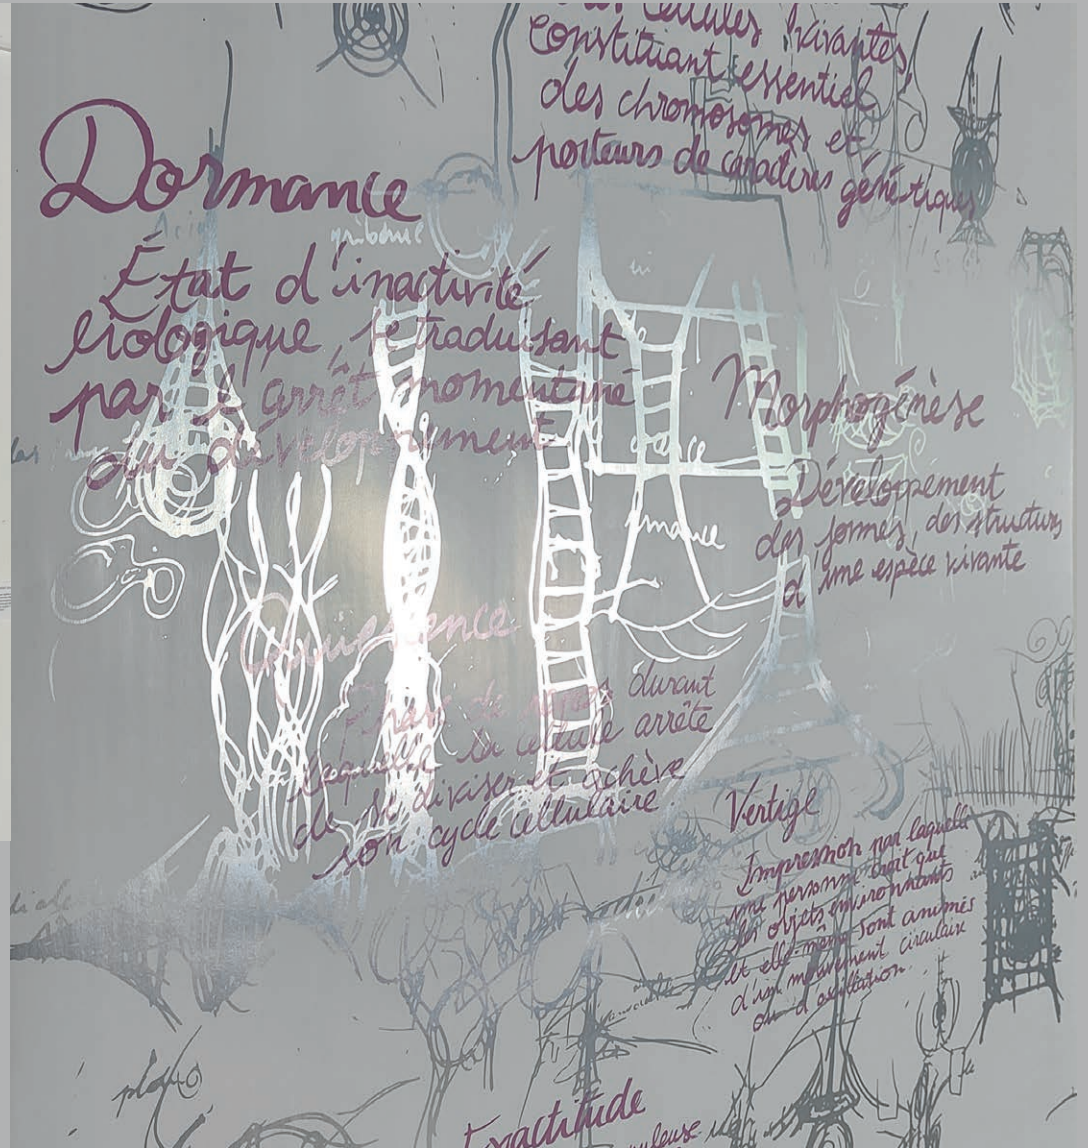 cellules vivantes,
constituant essentiel
des chromosomes et
porteurs de caractères génétiques
Dormance
État d'inactivité
biologique se traduisant
par l'arrêt momentané
du développement
Morphogénèse
Développement
des formes, des structures
d'une espèce vivante
Quiescence
Phase de repos durant
laquelle la cellule arrête
de se diviser et achève
son cycle cellulaire
Vertige
Impression par laquelle
une personne croit que
les objets environnants
et elle-même sont animés
d'un mouvement circulaire
ou d'oscillation.
Exactitude